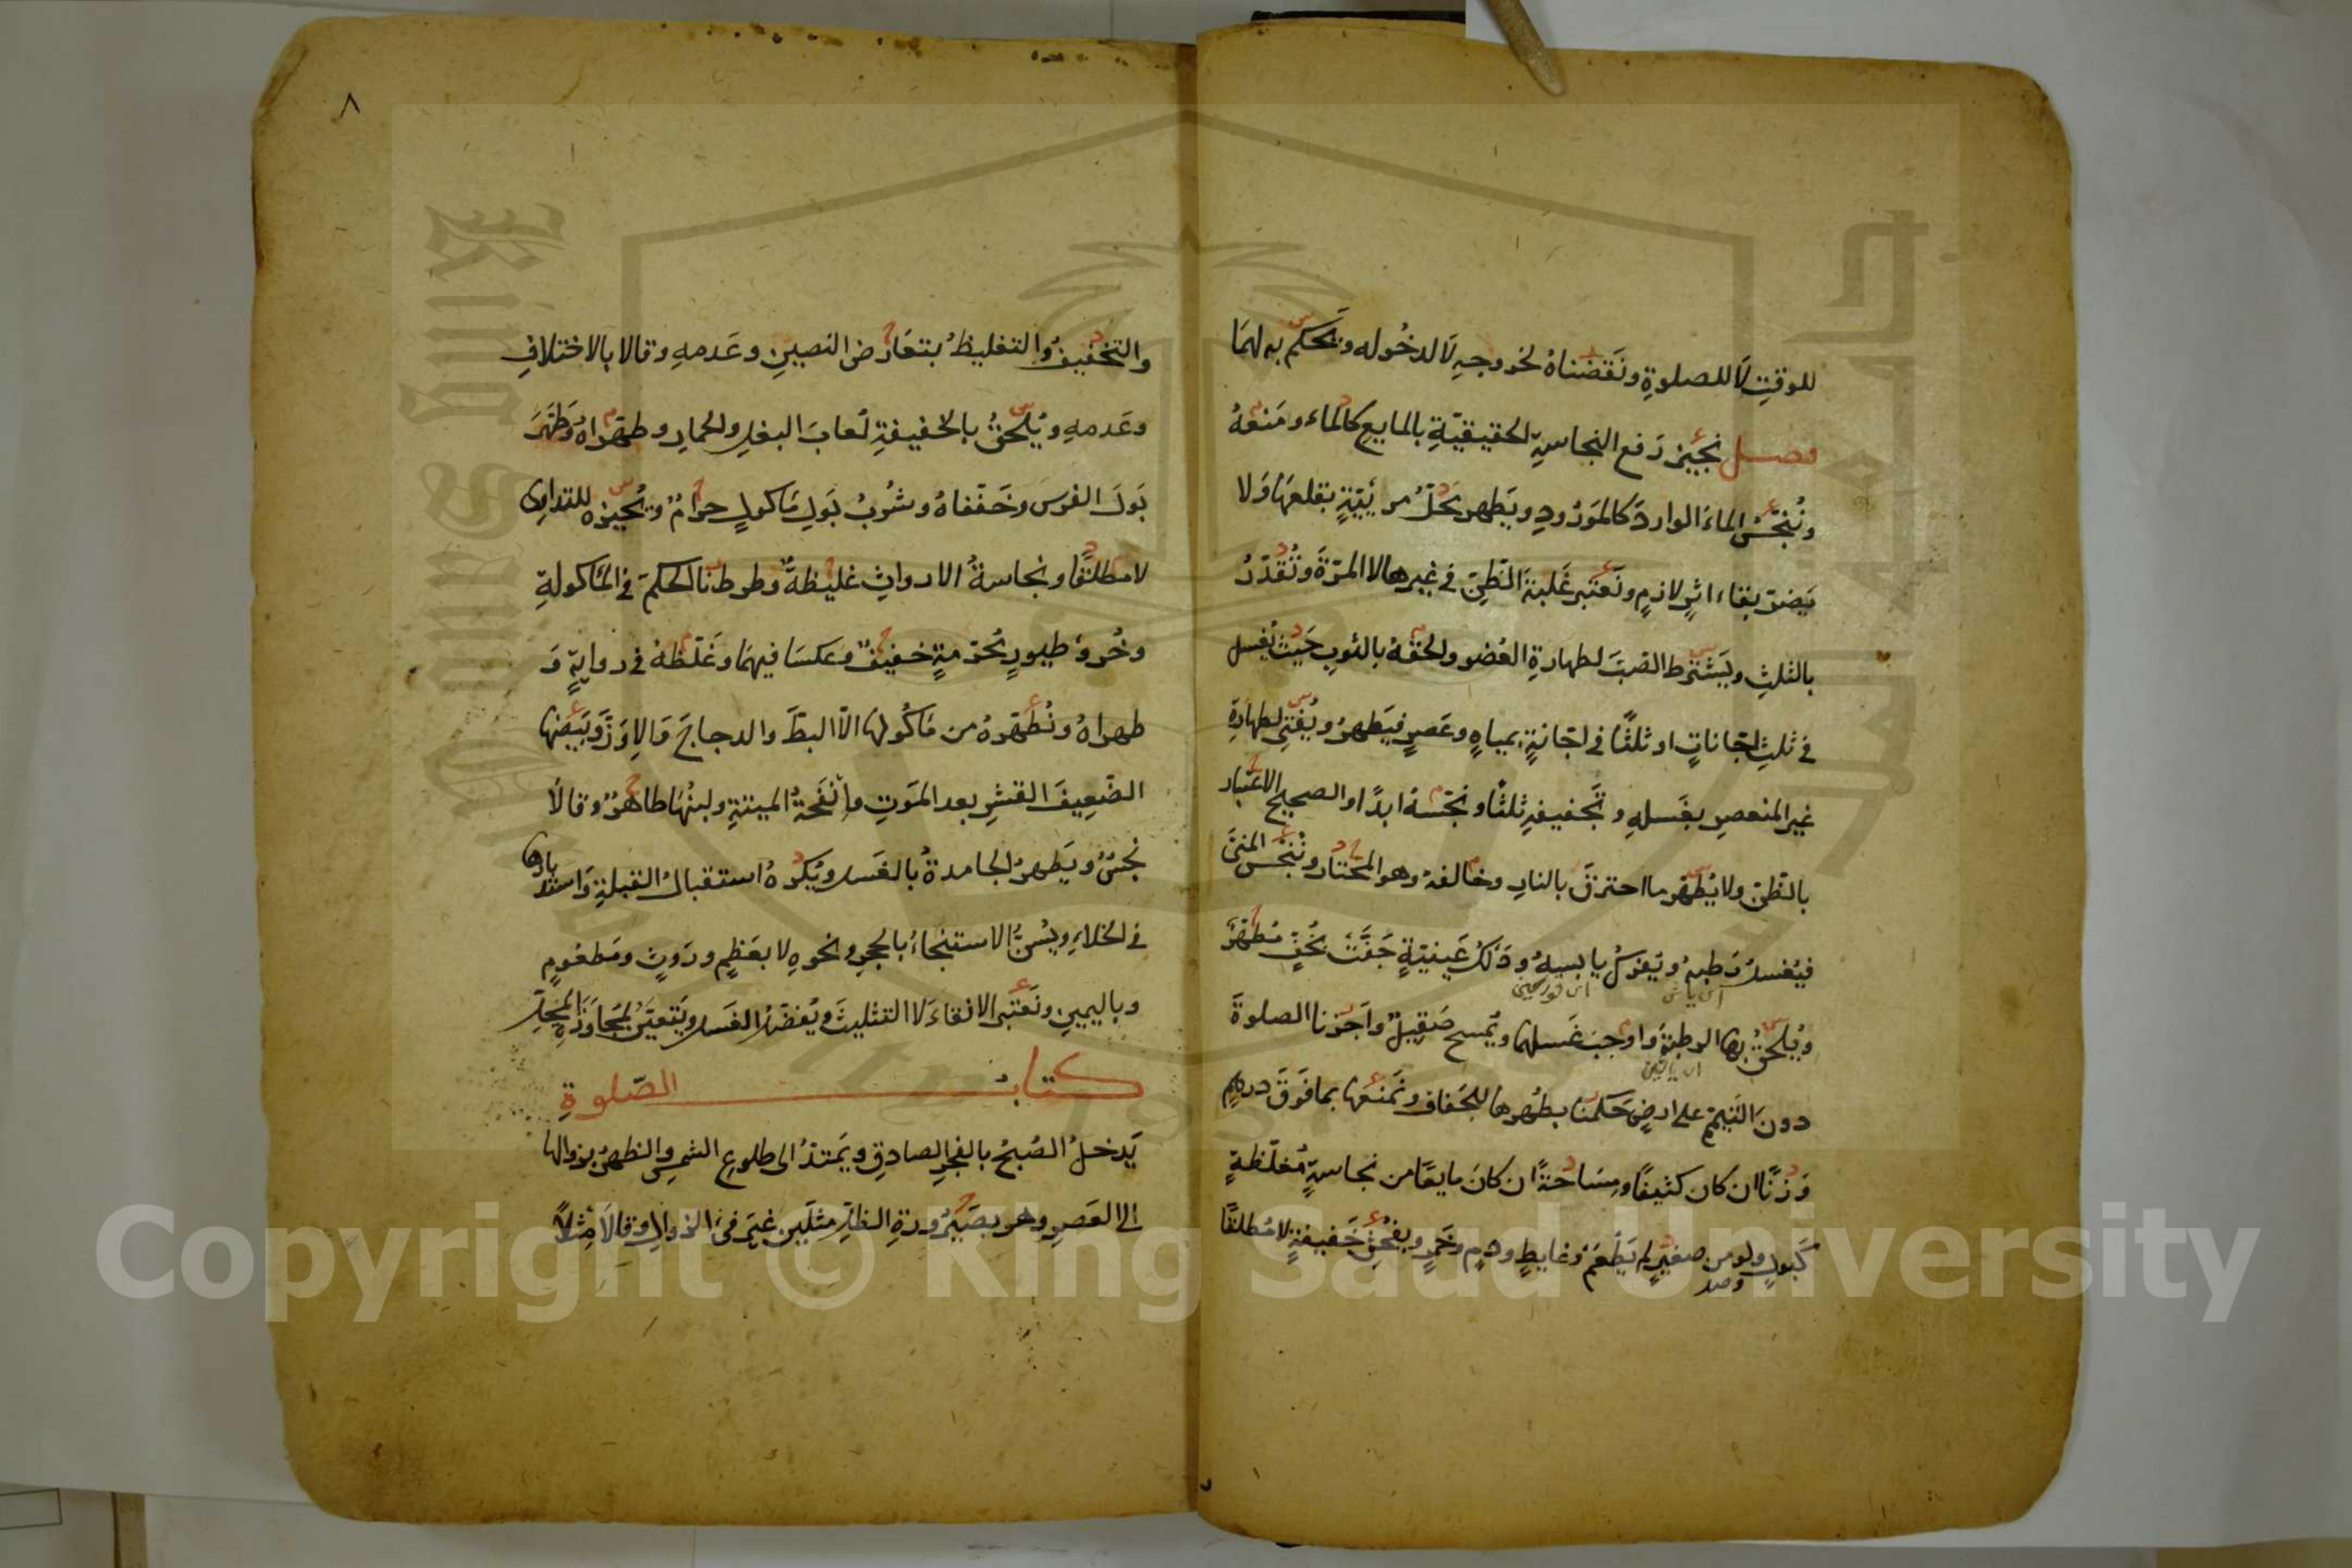 للوقتِ لَا للصلوةِ ونَقَضناهُ لخروجهِ لَا لدخُوله ويَحكم به لهمَا
فصل نجيز رَفع النجاسةِ الحقيقيّةِ بالمايع كالماء ومَنعهُ
ونُنجّسُ الماءَ الواردَ كالمَورُودِ ويَطهر محَلّ مرئيّةٍ بقلعهَا وَلا
يَضرّ بقاء اثرٍ لازمٍ ونَعتبر غَلبةَ الظّنِّ في غيرها لا المرّةَ ونُقدّرُ
بالثلثِ ويَشترط الصّبَ لطهارةِ العُضو ولحقهُ بالثوبِ حَيثُ يُغسل
في ثلثِ اجّاناتٍ او ثلثًا في اجّانةٍ بمياهٍ وعَصرٍ فيَطهرُ ويُفتي لطهَارةِ
غير المنعصرِ بغَسلهِ وتَجفيفهِ ثلثًا ونجّسهُ ابدًا والصحيح الاعتبار
بالظّنِّ ولا يُطهّر ما احترقَ بالنارِ وخالفهُ وهو المختار وننجّس المنيّ
فيُغسلُ رَطبهُ ويَفركُ يابسهُ ودَلكُ عَينيّةٍ جَفّت بخُفٍّ مُطهّرٌ
ويُلحقُ بها الرطبةَ واوجبَ غَسلها ويُمسح صَقيلٌ واَجزنا الصلوةَ
دونَ التيمّمِ على ارضٍ حَكمنا بطُهرها للجَفافِ ونَمنعهَا بما فَوقَ درهمٍ
وَزنًا ان كان كثيفًا ومسَاحةً ان كانَ مايعًا من نجاسةٍ مُغلّظةٍ
كَبولٍ ولو من صغيرٍ لم يَطعَم وغايطٍ ودمٍ وخَمرٍ وبفُحشِ خَفيفةٍ لا مُطلقًا
٨
والتخفيفُ والتغليظُ بتعَارُض النصينِ وعَدمهِ وقالا بالاختلافِ
وعَدمهِ ويُلحقُ بالخفيفةِ لُعابَ البغلِ والحمارِ وطهّراهُ وَطهّرَ
بَولَ الفرسَ وخَفّفاهُ وشُربُ بَولِ مَاكولٍ حرامٌ ويُجيزه للتداوي
لا مُطلقًا ونجاسةُ الارواثِ غليظةٌ وطرطنا الحكمَ في المَاكولةِ
وخُرؤ طيورٍ مُحرّمةٍ خفيفٌ وعكسَا فيهمَا وغَلّظهُ في روايةٍ وَ
طهراهُ ونُطهّرهُ من مَاكُولها الّا البطَّ والدجاجَ وَالاِوَزَّ وبَيضها
الضّعِيفَ القشرِ بعد المَوتِ واِنفَحةُ الميتةِ ولبنُهَا طاهرٌ وقالَا
نجسٌ ويَطهرُ الجامدةُ بالغَسل ويُكرهُ استقبالُ القبلةِ وَاستدبارها
في الخلاءِ ويُسنُّ الاستنجاءُ بالحجرِ ونحوهِ لا بعَظمٍ ورَوثٍ ومَطعُومٍ
وباليمينِ ونَعتبر الانقاءَ لَا التثليثَ ويُفضّلُ الغَسل ويَتعيّنُ لمجَاوَزةِ المحَلِّ
كتابُ الصّلوةِ
يَدخلُ الصُبحُ بالفجرِ الصادقِ ويَمتدُّ الى طلوعِ الشمسِ والظهرُ بزوالها
الى العَصرِ وهو بصَيرُورةِ الظلّ مثلَين غيرَ فئ الزوالِ وقالَا مِثلًا